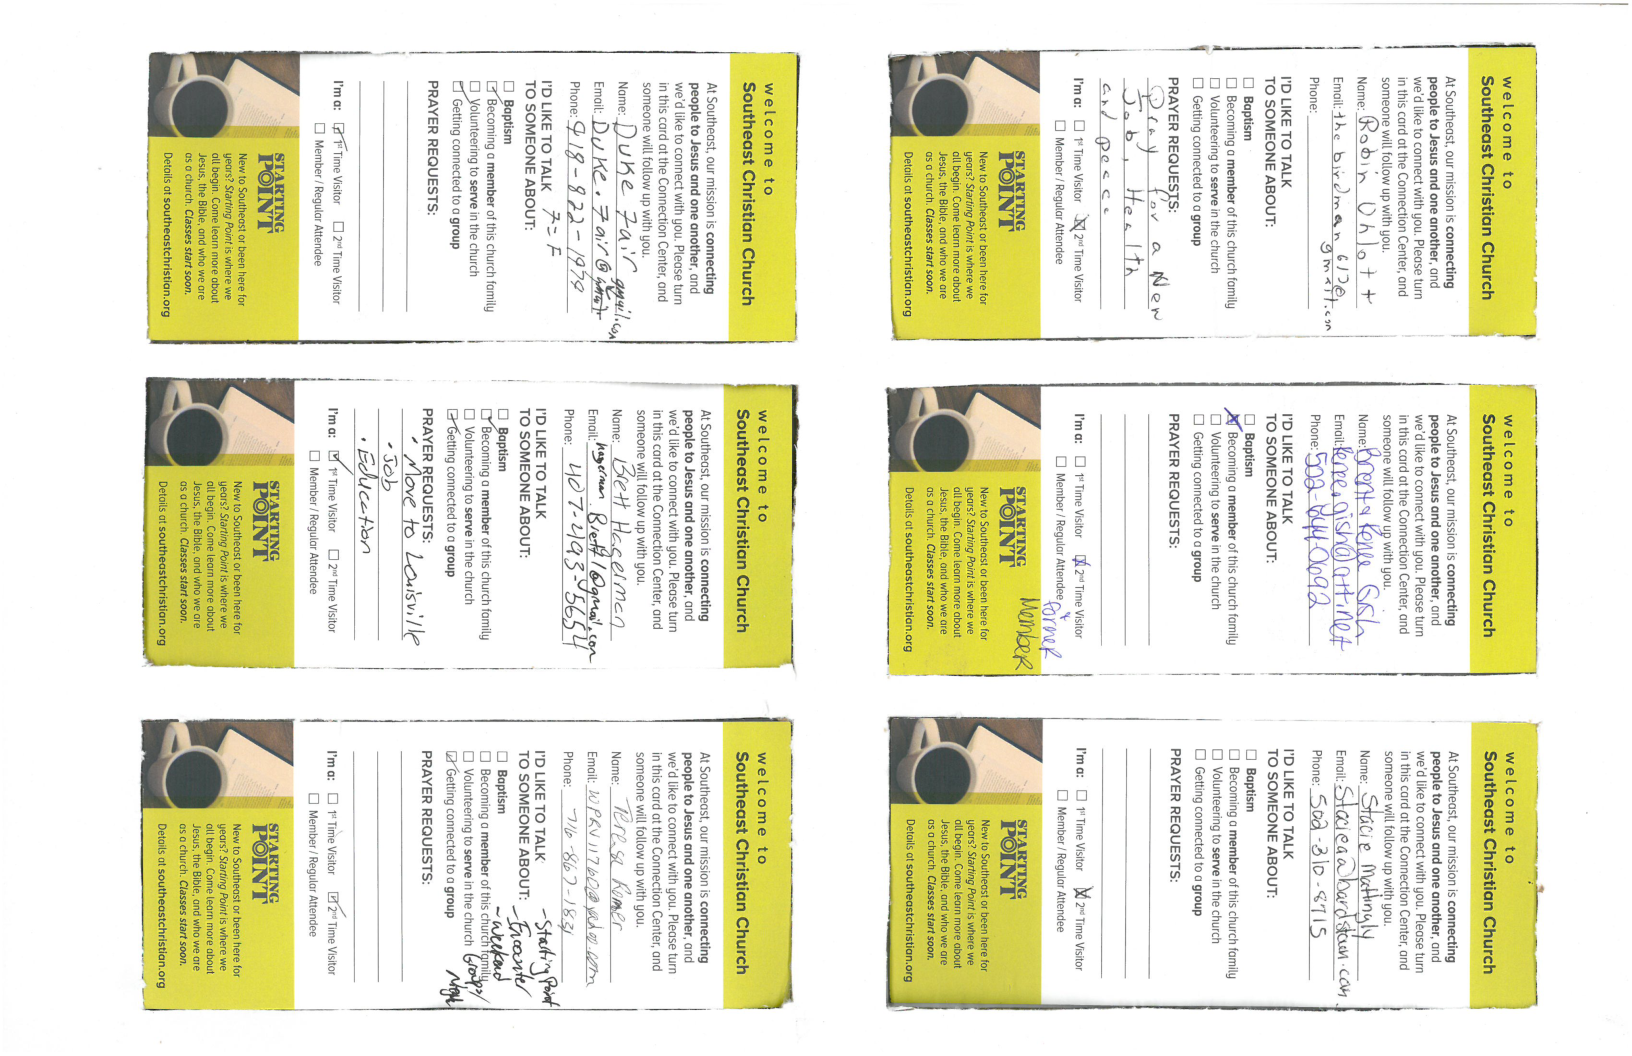 welcome to
Southeast Christian Church
At Southeast, our mission is connecting
people to Jesus and one another, and
we'd like to connect with you. Please turn
in this card at the Connection Center, and
someone will follow up with you.
Name: Duke Fair
gmail.com
Email: Duke.7air@
Phone: 918-822-1979
7=F
I'D LIKE TO TALK
TO SOMEONE ABOUT:
☐ Baptism
☑ Becoming a member of this church family
☐ Volunteering to serve in the church
☑ Getting connected to a group
PRAYER REQUESTS:
I'm a: ☑ 1st Time Visitor ☐ 2nd Time Visitor
☐ Member / Regular Attendee
STARTING
POINT
New to Southeast or been here for
years? Starting Point is where we
all begin. Come learn more about
Jesus, the Bible, and who we are
as a church. Classes start soon.
Details at southeastchristian.org
welcome to
Southeast Christian Church
At Southeast, our mission is connecting
people to Jesus and one another, and
we'd like to connect with you. Please turn
in this card at the Connection Center, and
someone will follow up with you.
Name: Robin Uhlott
Email: the birdman6120
gmail.com
Phone:
I'D LIKE TO TALK
TO SOMEONE ABOUT:
☐ Baptism
☐ Becoming a member of this church family
☐ Volunteering to serve in the church
☐ Getting connected to a group
PRAYER REQUESTS:
Pray for a New
Job, Health
and peace
I'm a: ☐ 1st Time Visitor ☒ 2nd Time Visitor
☐ Member / Regular Attendee
STARTING
POINT
New to Southeast or been here for
years? Starting Point is where we
all begin. Come learn more about
Jesus, the Bible, and who we are
as a church. Classes start soon.
Details at southeastchristian.org
welcome to
Southeast Christian Church
At Southeast, our mission is connecting
people to Jesus and one another, and
we'd like to connect with you. Please turn
in this card at the Connection Center, and
someone will follow up with you.
Name: Brett Hagerman
Email: hagerman.Brett1@gmail.com
Phone: 407-493-5654
I'D LIKE TO TALK
TO SOMEONE ABOUT:
☐ Baptism
☑ Becoming a member of this church family
☐ Volunteering to serve in the church
☑ Getting connected to a group
PRAYER REQUESTS:
• Move to Louisville
• Job
• Education
I'm a: ☑ 1st Time Visitor ☐ 2nd Time Visitor
☐ Member / Regular Attendee
STARTING
POINT
New to Southeast or been here for
years? Starting Point is where we
all begin. Come learn more about
Jesus, the Bible, and who we are
as a church. Classes start soon.
Details at southeastchristian.org
welcome to
Southeast Christian Church
At Southeast, our mission is connecting
people to Jesus and one another, and
we'd like to connect with you. Please turn
in this card at the Connection Center, and
someone will follow up with you.
Name: Brent & Rene Gish
Email: rene.gish@att.net
Phone: 502-644-0692
I'D LIKE TO TALK
TO SOMEONE ABOUT:
☐ Baptism
☒ Becoming a member of this church family
☐ Volunteering to serve in the church
☐ Getting connected to a group
PRAYER REQUESTS:
I'm a: ☐ 1st Time Visitor ☒ 2nd Time Visitor
☐ Member / Regular Attendee * former
Member
STARTING
POINT
New to Southeast or been here for
years? Starting Point is where we
all begin. Come learn more about
Jesus, the Bible, and who we are
as a church. Classes start soon.
Details at southeastchristian.org
welcome to
Southeast Christian Church
At Southeast, our mission is connecting
people to Jesus and one another, and
we'd like to connect with you. Please turn
in this card at the Connection Center, and
someone will follow up with you.
Name: Teresa Romer
Email: WPRV11760@yahoo.com
Phone: 716-867-1831
I'D LIKE TO TALK - Starting Point
TO SOMEONE ABOUT: - Encounter
☐ Baptism - Weekend
☐ Becoming a member of this church family
☐ Volunteering to serve in the church Groups/
☑ Getting connected to a group
PRAYER REQUESTS:
I'm a: ☐ 1st Time Visitor ☑ 2nd Time Visitor
☐ Member / Regular Attendee
STARTING
POINT
New to Southeast or been here for
years? Starting Point is where we
all begin. Come learn more about
Jesus, the Bible, and who we are
as a church. Classes start soon.
Details at southeastchristian.org
welcome to
Southeast Christian Church
At Southeast, our mission is connecting
people to Jesus and one another, and
we'd like to connect with you. Please turn
in this card at the Connection Center, and
someone will follow up with you.
Name: Stacie Mattingly
Email: Stacie@abardstown.com
Phone: 502-310-8715
I'D LIKE TO TALK
TO SOMEONE ABOUT:
☐ Baptism
☐ Becoming a member of this church family
☐ Volunteering to serve in the church
☐ Getting connected to a group
PRAYER REQUESTS:
I'm a: ☐ 1st Time Visitor ☒ 2nd Time Visitor
☐ Member / Regular Attendee
STARTING
POINT
New to Southeast or been here for
years? Starting Point is where we
all begin. Come learn more about
Jesus, the Bible, and who we are
as a church. Classes start soon.
Details at southeastchristian.org